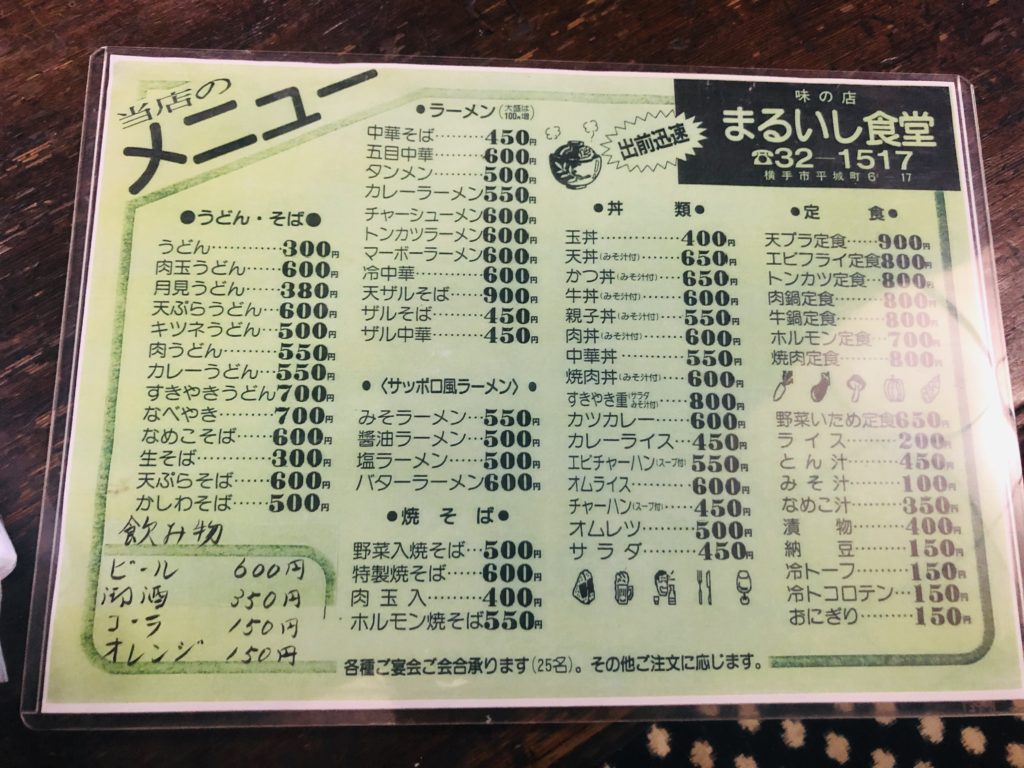 当店の
メニュー
味の店
まるいし食堂
☎32-1517
横手市平城町6 17
出前迅速
●うどん・そば●
うどん……300円
肉玉うどん……600円
月見うどん……380円
天ぷらうどん…600円
キツネうどん…500円
肉うどん………550円
カレーうどん…550円
すきやきうどん700円
なべやき………700円
なめこそば……600円
生そば…………300円
天ぷらそば……600円
かしわそば……500円
飲み物
ビール 600円
酒 350円
コーラ 150円
オレンジ 150円
●ラーメン(大盛は100円増)
中華そば……450円
五目中華……600円
タンメン……500円
カレーラーメン550円
チャーシューメン600円
トンカツラーメン600円
マーボーラーメン600円
冷中華………600円
天ザルそば……900円
ザルそば……450円
ザル中華……450円
●〈サッポロ風ラーメン〉●
みそラーメン…550円
醬油ラーメン…500円
塩ラーメン……500円
バターラーメン600円
●焼そば●
野菜入焼そば…500円
特製焼そば……600円
肉玉入……400円
ホルモン焼そば550円
●丼類●
玉丼……………400円
天丼(みそ汁付)……650円
かつ丼(みそ汁付)…650円
牛丼(みそ汁付)……600円
親子丼(みそ汁付)…550円
肉丼(みそ汁付)……600円
中華丼…………550円
焼肉丼(みそ汁付)…600円
すきやき重(サラダみそ汁付)…800円
カツカレー……600円
カレーライス…450円
エビチャーハン(スープ付)550円
オムライス……600円
チャーハン(スープ付)…450円
オムレツ……500円
サラダ……450円
●定食●
天プラ定食……900円
エビフライ定食800円
トンカツ定食…800円
肉鍋定食……800円
牛鍋定食……800円
ホルモン定食…700円
焼肉定食……800円
野菜いため定食650円
ライス……200円
とん汁……450円
みそ汁……100円
なめこ汁……350円
漬物……400円
納豆……150円
冷トーフ……150円
冷トコロテン…150円
おにぎり……150円
各種ご宴会ご会合承ります(25名)。その他ご注文に応じます。